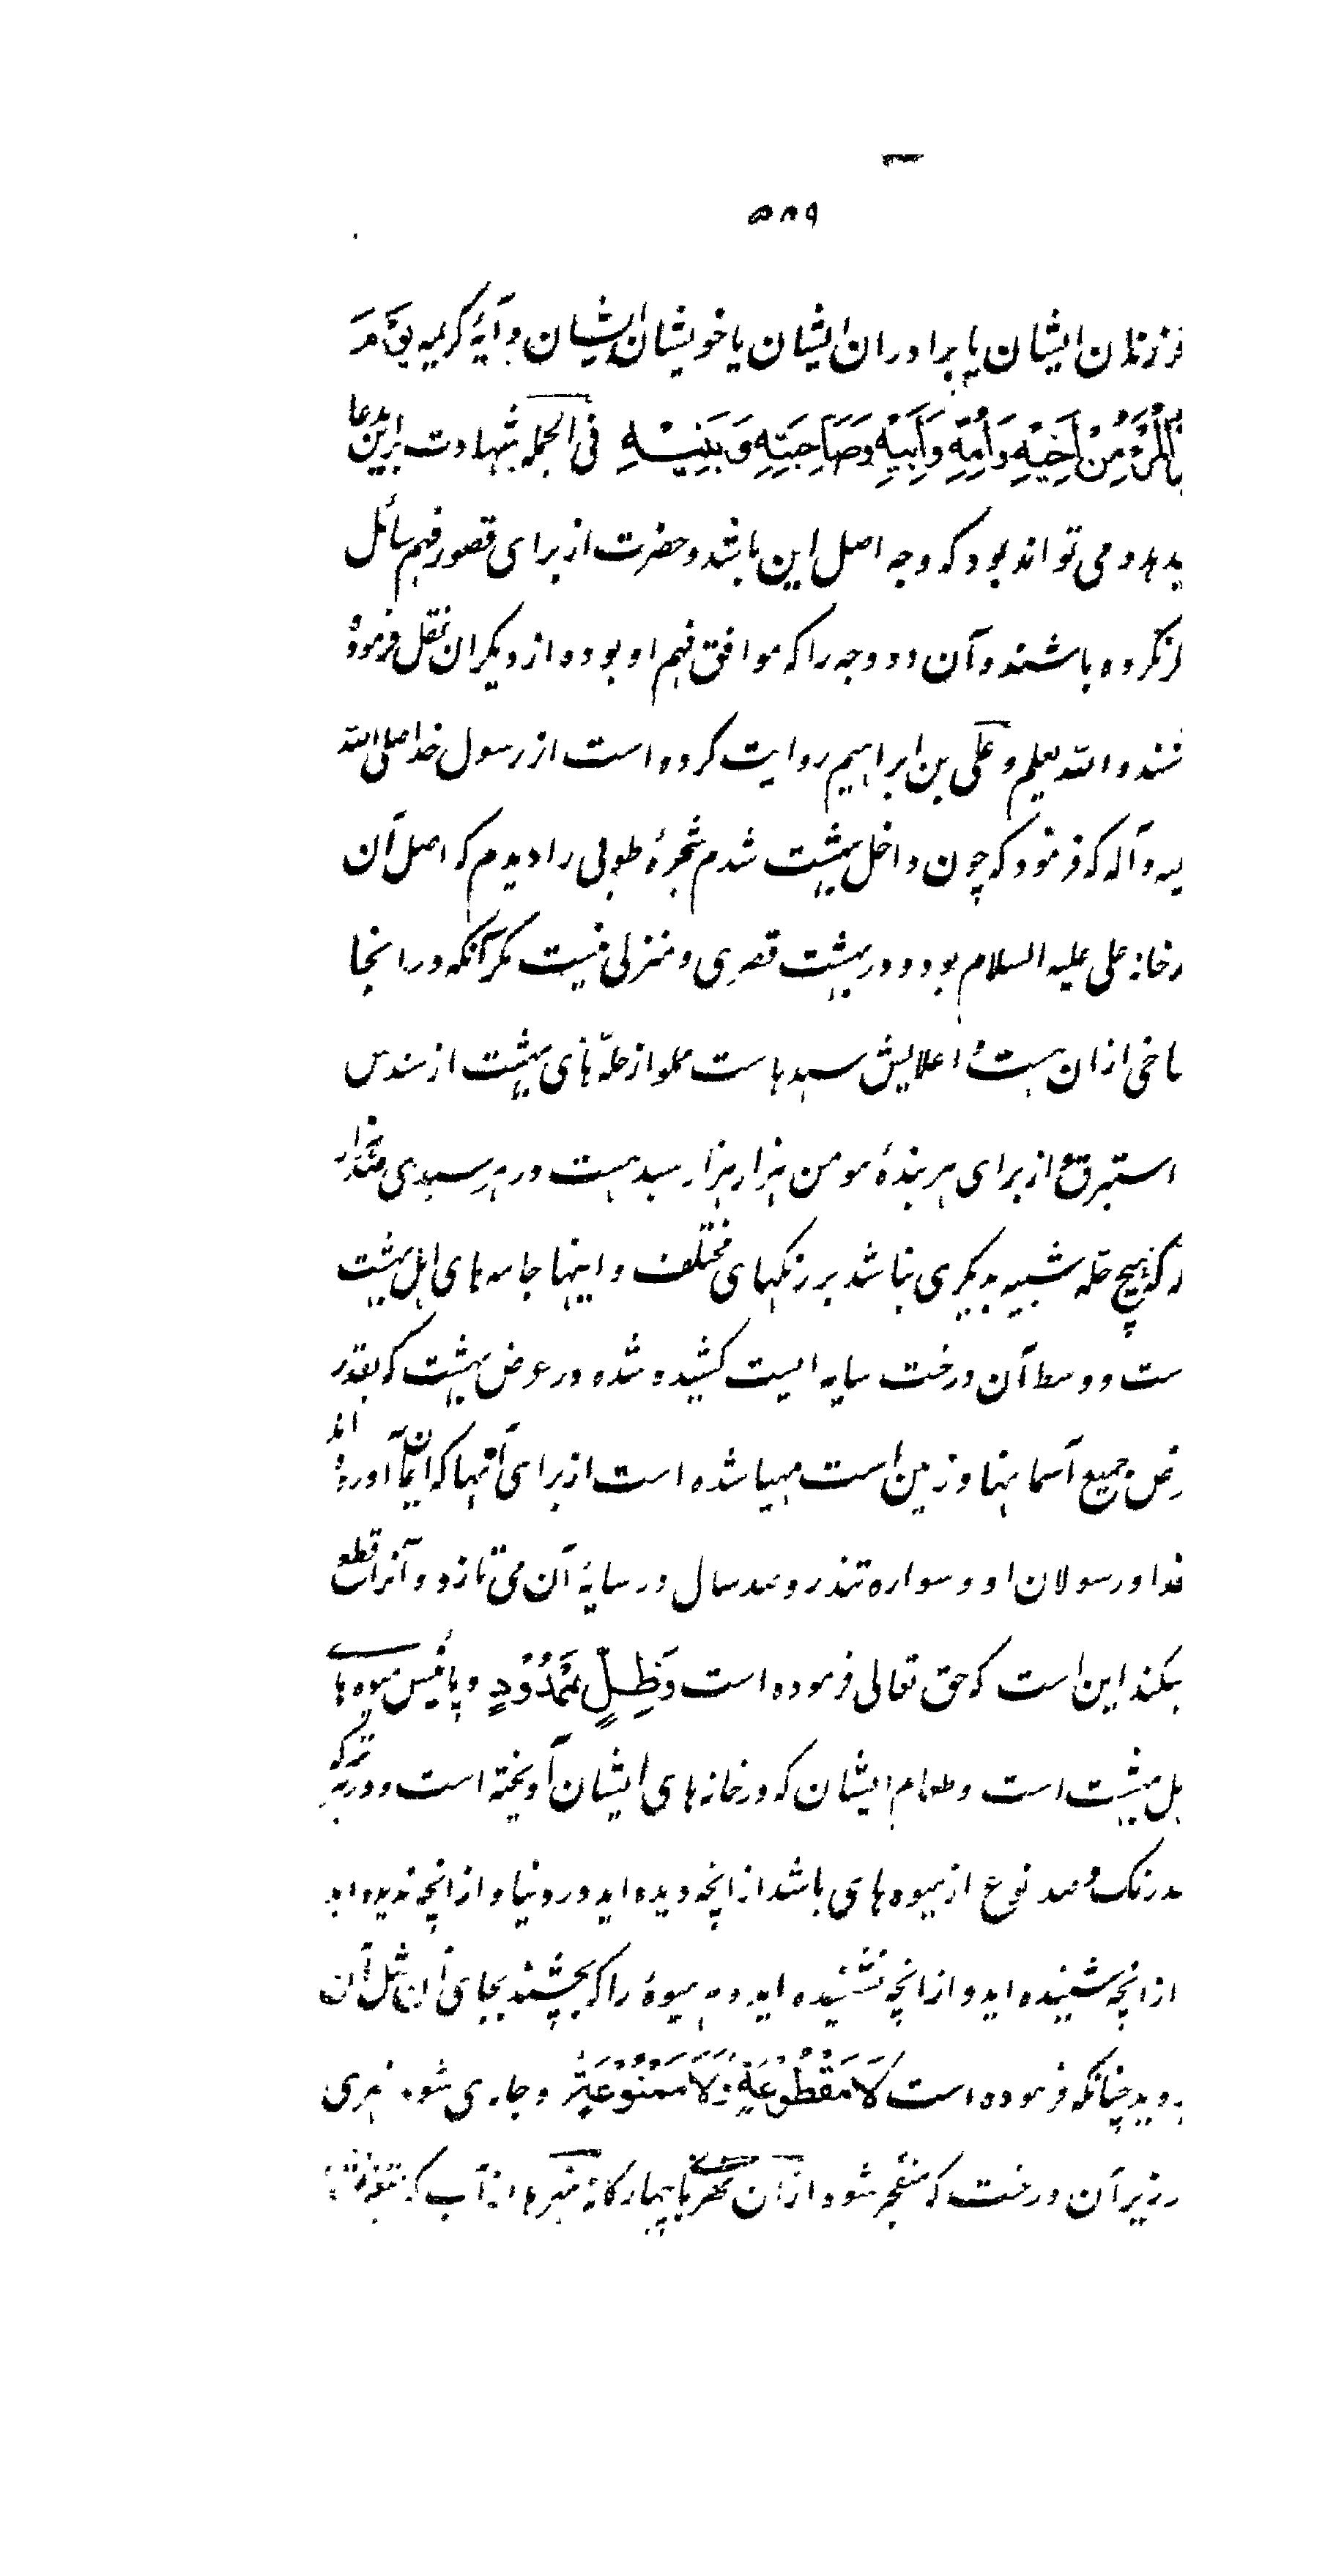 ۵۸۹
فرزندان ایشان یا برادران ایشان یا خویشان ایشان و آیۀ کریمه یَوْمَ
الْمَرْءُ مِنْ أَخِیْهِ وَأُمِّهِ وَأَبِیْهِ وَصَاحِبَتِهِ وَبَنِیْهِ فی الجمله شهادت براین مدعا
بدهد و می تواند بود که وجه اصل این باشد و حضرت از برای قصور فهم سائل
ذکر نکرده باشند و آن دو وجه را که موافق فهم او بوده از دیکران نقل فرموده
باشند والله یعلم و علی بن ابراهیم روایت کرده است از رسول خدا صلی الله
علیه و آله که فرمود که چون داخل بهشت شدم شجرۀ طوبی را دیدم که اصل آن
در خانه علی علیه السلام بود و در بهشت قصری و منزلی نیست مکر آنکه در انجا
شاخی از ان هست و اعلایش سبدهاست مملو از حلّه های بهشت از سندس
استبرق و از برای هر بندۀ مومن هزار هزار سبد هست و در هر سبدی صد هزار
که هیچ حله شبیه بدیکری نباشد بر رنکهای مختلف و اینها جامه های اهل بهشت
ست و وسط آن درخت سایه ایست کشیده شده در عرض بهشت که بقدر
عرض جمیع آسمانها و زمین است مهیا شده است از برای آنها که ایمان آورده اند
خدا و رسولان او و سواره تندرو صد سال در سایۀ آن می تازد و آنرا قطع
نمیکند این است که حق تعالی فرموده است وَظِلٍّ مَّمْدُوْدٍ و پائینش میوه های
اهل بهشت است و طعام ایشان که در خانه های ایشان آویخته است و در هر
صد رنک و صد نوع از میوه های باشد از انچه دیده اید در دنیا و از انچه ندیده اید
از انچه شنیده اید و از انچه نشنیده اید و هر میوۀ را که بچینند بجای آن مثل آن
بروید چنانکه فرموده است لَا مَقْطُوْعَةٍ وَّلَا مَمْنُوْعَةٍ و جاری شود نهری
در زیر آن درخت که منفجر شود از آن نهرهای چهارکانه نهرها از آب که